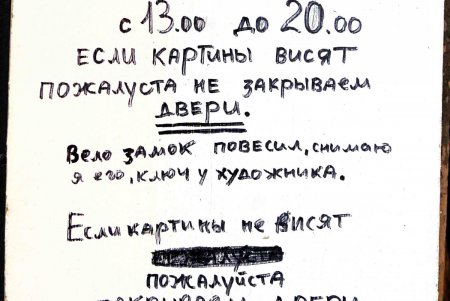 с 13.00 до 20.00
если картины висят
пожалуста не закрываем
двери.
Вело замок повесил, снимаю
я его, ключ у художника.
Если картины не висят
пожалуйста
закрываем двери